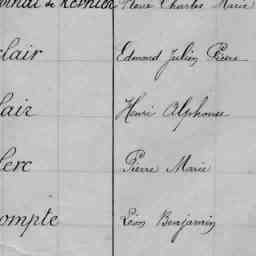 de Revnier Marie Charles Marie
clair Edmond Julien Pierre
lair Henri Alphonse
lerc Pierre Marie
ompte Léon Benjamin